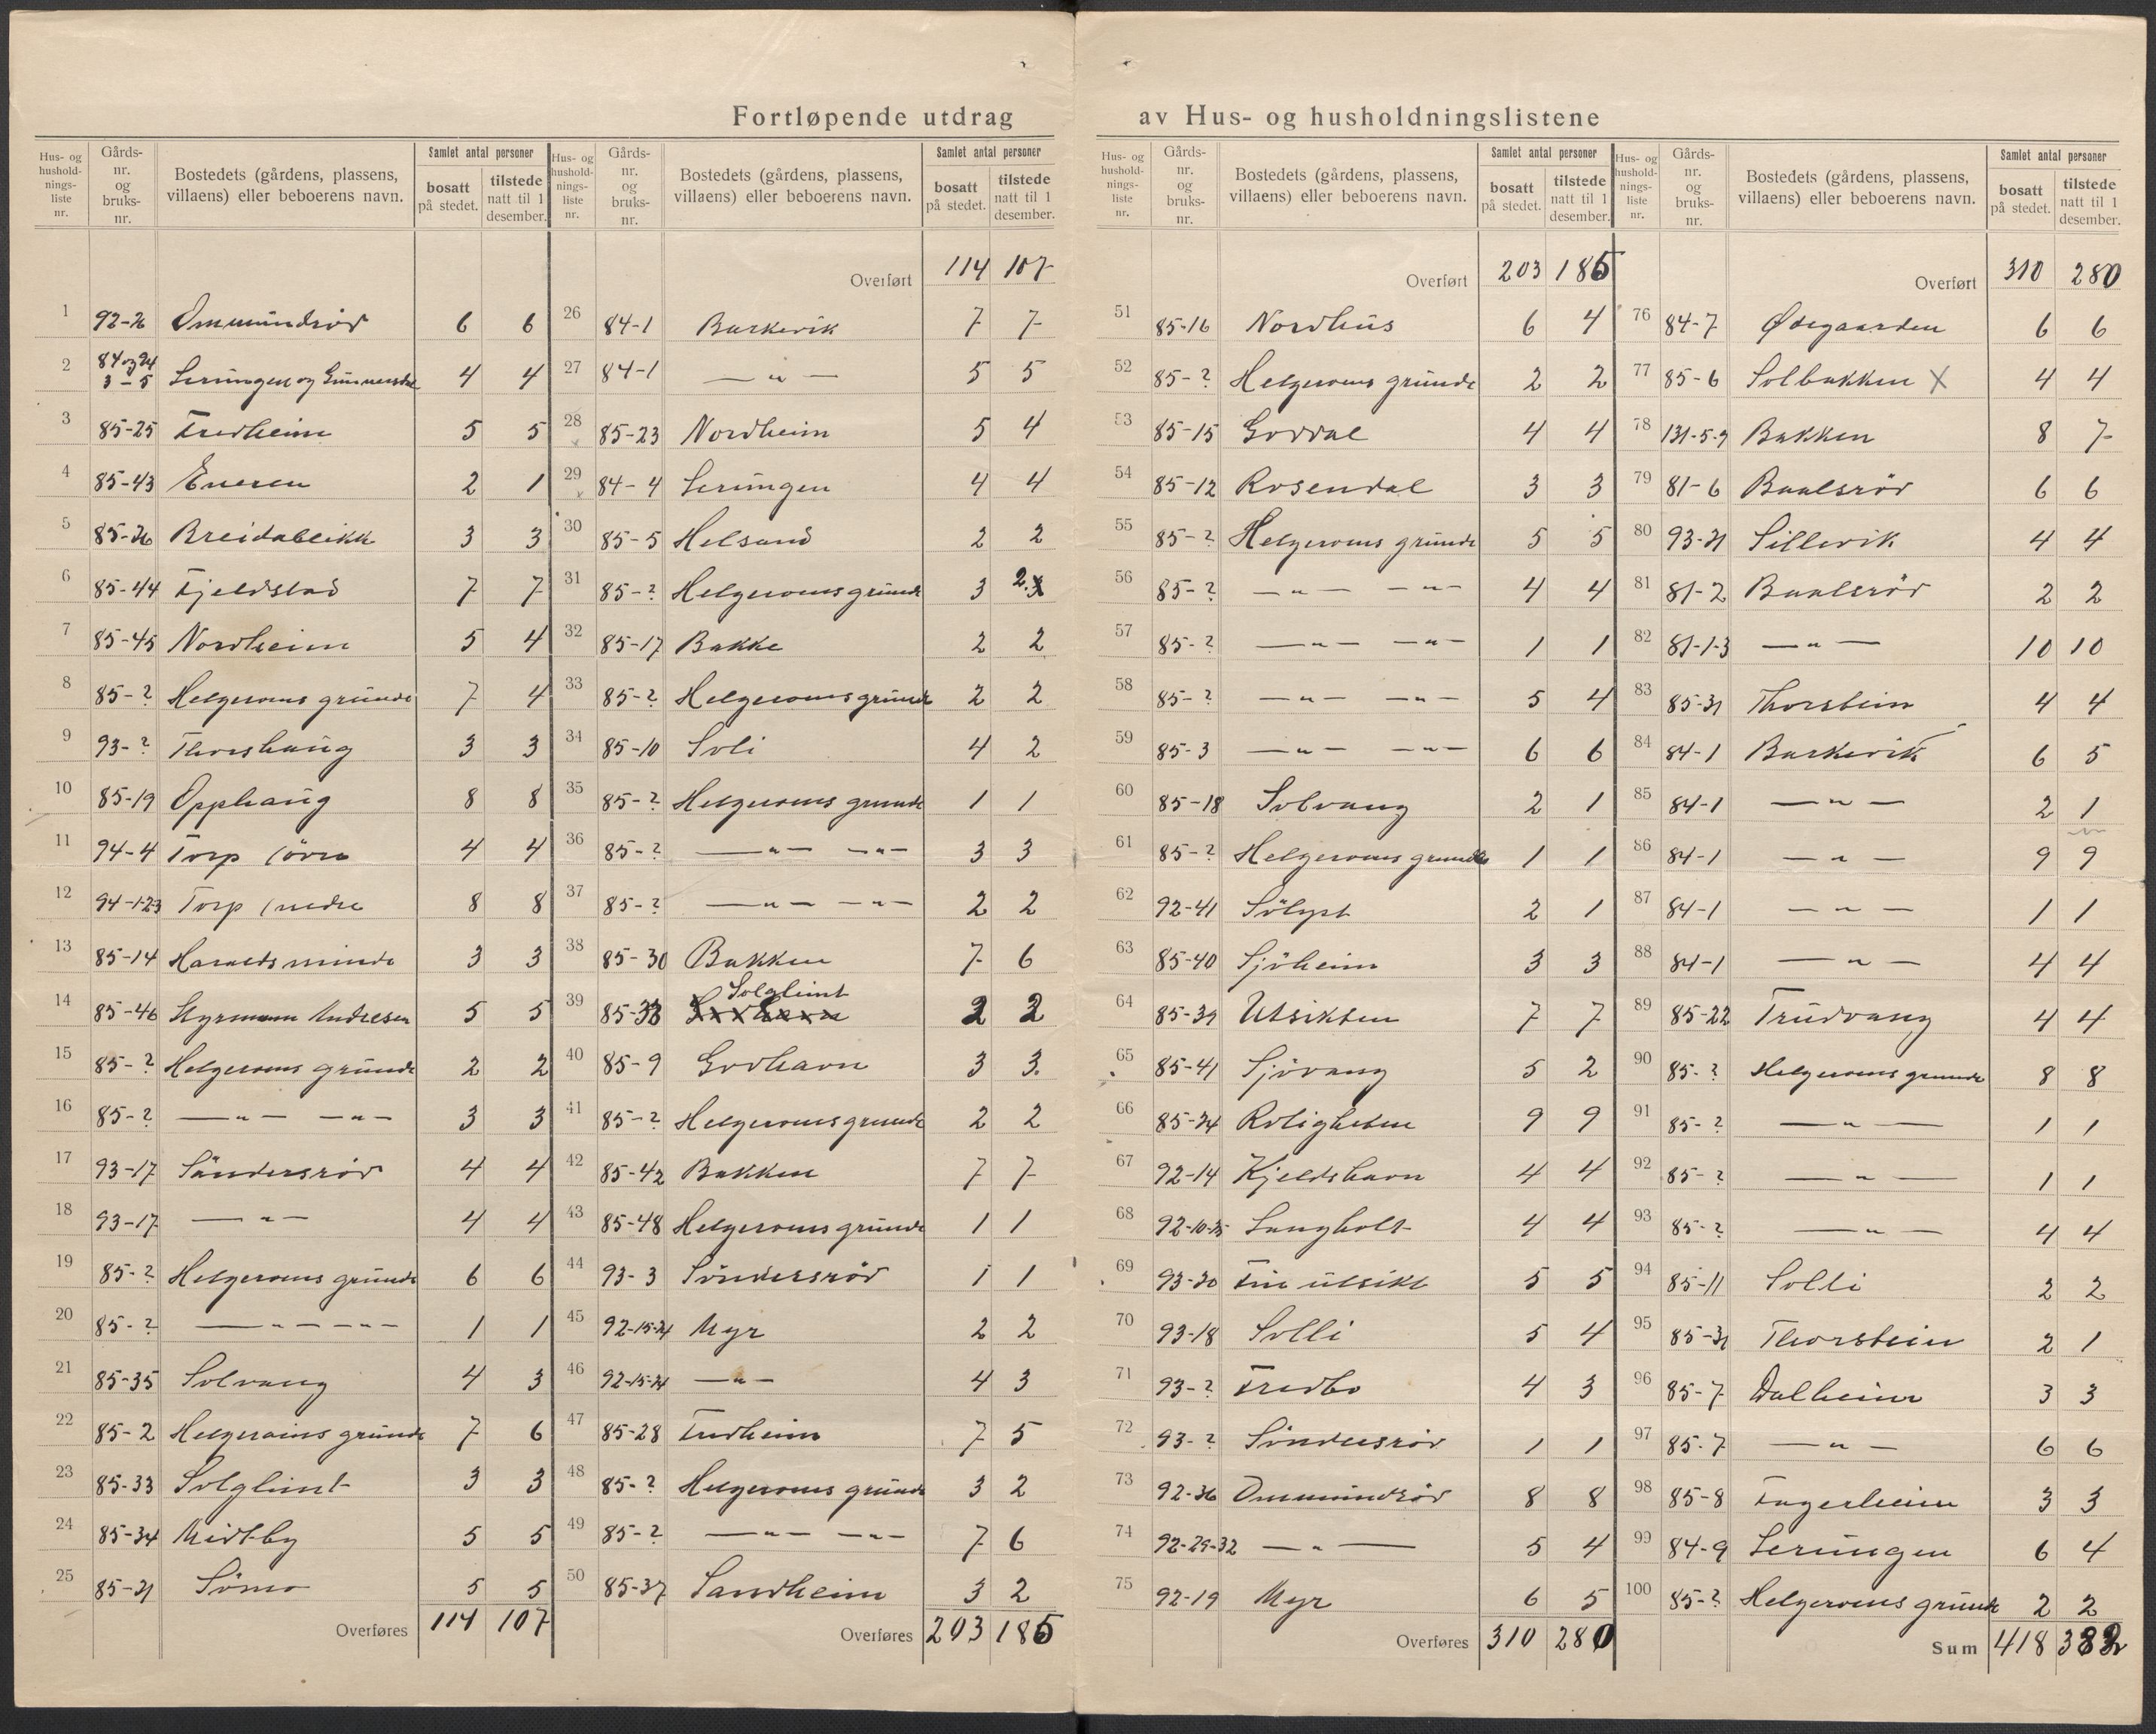 Fortløpende utdrag av Hus- og husholdningslistene
Hus- og husholdnings-liste nr. Gårds-nr. og bruks-nr. Bostedets (gårdens, plassens, villaens) eller beboerens navn. Samlet antal personer bosatt på stedet. tilstede natt til 1 desember.
1 92-26 Ommundrød 6 6
2 84 og 94 3-5 Lerungen og 4 4
3 85-25 Fredheim 5 5
4 85-43 Eneren 2 1
5 85-26 Breidableikk 3 3
6 85-44 Fjeldstad 7 7
7 85-45 Nordheim 5 4
8 85-? Helgeroens grunde 7 4
9 93-? Thorshaug 3 3
10 85-19 Opphaug 8 8
11 94-4 Torp (övre 4 4
12 94-1-23 Torp (nedre 8 8
13 85-14 Haraldsminde 3 3
14 85-46 Styrmann Andresen 5 5
15 85-? Helgeroens grunde 2 2
16 85-? —„— —„— 3 3
17 93-17 Söndersröd 4 4
18 93-17 —„— 4 4
19 85-? Helgeroens grunde 6 6
20 85-? —„— —„— 1 1
21 85-35 Solvang 4 3
22 85-2 Helgeroens grunde 7 6
23 85-33 Solglimt 3 3
24 85-34 Midtby 5 5
25 85-21 Sömo 5 5
Overføres 114 107
Hus- og husholdnings-liste nr. Gårds-nr. og bruks-nr. Bostedets (gårdens, plassens, villaens) eller beboerens navn. Samlet antal personer bosatt på stedet. tilstede natt til 1 desember.
Overført 114 107
26 84-1 Barkevik 7 7
27 84-1 —„— 5 5
28 85-23 Nordheim 5 4
29 84-4 Lerungen 4 4
30 85-5 Helsand 2 2
31 85-? Helgeroens grunde 3 2
32 85-17 Bakke 2 2
33 85-? Helgeroens grunde 2 2
34 85-10 Soli 4 2
35 85-? Helgeroens grunde 1 1
36 85-? —„— —„— 3 3
37 85-? —„— —„— 2 2
38 85-30 Bakken 7 6
39 85-33 Solglimt 2 2
40 85-9 Godhavn 3 3
41 85-? Helgeroens grunde 2 2
42 85-42 Bakken 7 7
43 85-48 Helgeroens grunde 1 1
44 93-3 Söndersröd 1 1
45 92-15-24 Myr 2 2
46 92-15-24 —„— 4 3
47 85-28 Fredheim 7 5
48 85-? Helgeroens grunde 3 2
49 85-? —„— —„— 7 6
50 85-37 Sandheim 3 2
Overføres 203 185
Hus- og husholdnings-liste nr. Gårds-nr. og bruks-nr. Bostedets (gårdens, plassens, villaens) eller beboerens navn. Samlet antal personer bosatt på stedet. tilstede natt til 1 desember.
Overført 203 185
51 85-16 Nordhus 6 4
52 85-? Helgeroens grunde 2 2
53 85-15 Goddal 4 4
54 85-12 Rosendal 3 3
55 85-? Helgeroens grunde 5 5
56 85-? —„— —„— 4 4
57 85-? —„— —„— 1 1
58 85-? —„— —„— 5 4
59 85-3 —„— —„— 6 6
60 85-18 Solvang 2 1
61 85-? Helgeroens grunde 1 1
62 92-41 Sölyst 2 1
63 85-40 Sjöheim 3 3
64 85-39 Utsikten 7 7
65 85-41 Sjövang 5 2
66 85-24 Roligheten 9 9
67 92-14 Kjeldshavn 4 4
68 92-10-25 Langholt 4 4
69 93-20 Fin utsikt 5 5
70 93-18 Solli 5 4
71 93-? Fredbo 4 3
72 93-? Söndersröd 1 1
73 92-36 Ommundröd 8 8
74 92-29-32 —„— 5 4
75 92-19 Myr 6 5
Overføres 310 280
Hus- og husholdnings-liste nr. Gårds-nr. og bruks-nr. Bostedets (gårdens, plassens, villaens) eller beboerens navn. Samlet antal personer bosatt på stedet. tilstede natt til 1 desember.
Overført 310 280
76 84-7 Ødegaarden 6 6
77 85-6 Solbakken X 4 4
78 131-5-9 Bakken 8 7
79 81-6 Baalsröd 6 6
80 93-21 Sillevik 4 4
81 81-2 Baalsröd 2 2
82 81-1-3 —„— 10 10
83 85-31 Thorstein 4 4
84 84-1 Barkevik 6 5
85 84-1 —„— 2 1
86 84-1 —„— 9 9
87 84-1 —„— 1 1
88 84-1 —„— 4 4
89 85-22 Trudvang 4 4
90 85-? Helgeroens grunde 8 8
91 85-? —„— 1 1
92 85-? —„— 1 1
93 85-? —„— 4 4
94 85-11 Solli 2 2
95 85-31 Thorstein 2 1
96 85-7 Dalheim 3 3
97 85-7 —„— 6 6
98 85-8 Fagerheim 3 3
99 84-9 Lerungen 6 4
100 85-? Helgeroens grunde 2 2
Sum 418 382